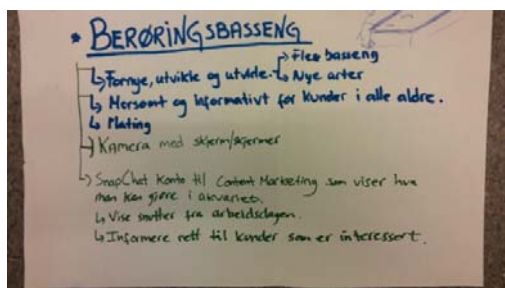 * BERØRINGSBASSENG
↳ Fornye, utvikle og utvide. ↳ Flere basseng
↳ Nye arter
↳ Morsomt og informativt for kunder i alle aldre.
↳ Mating
↳ Kamera med skjerm/skjermer
↳ SnapChat konto til Content Marketing som viser hva
man kan gjøre i akvariet.
↳ Vise snutter fra arbeidsdagen.
↳ Informere rett til kunder som er interessert.